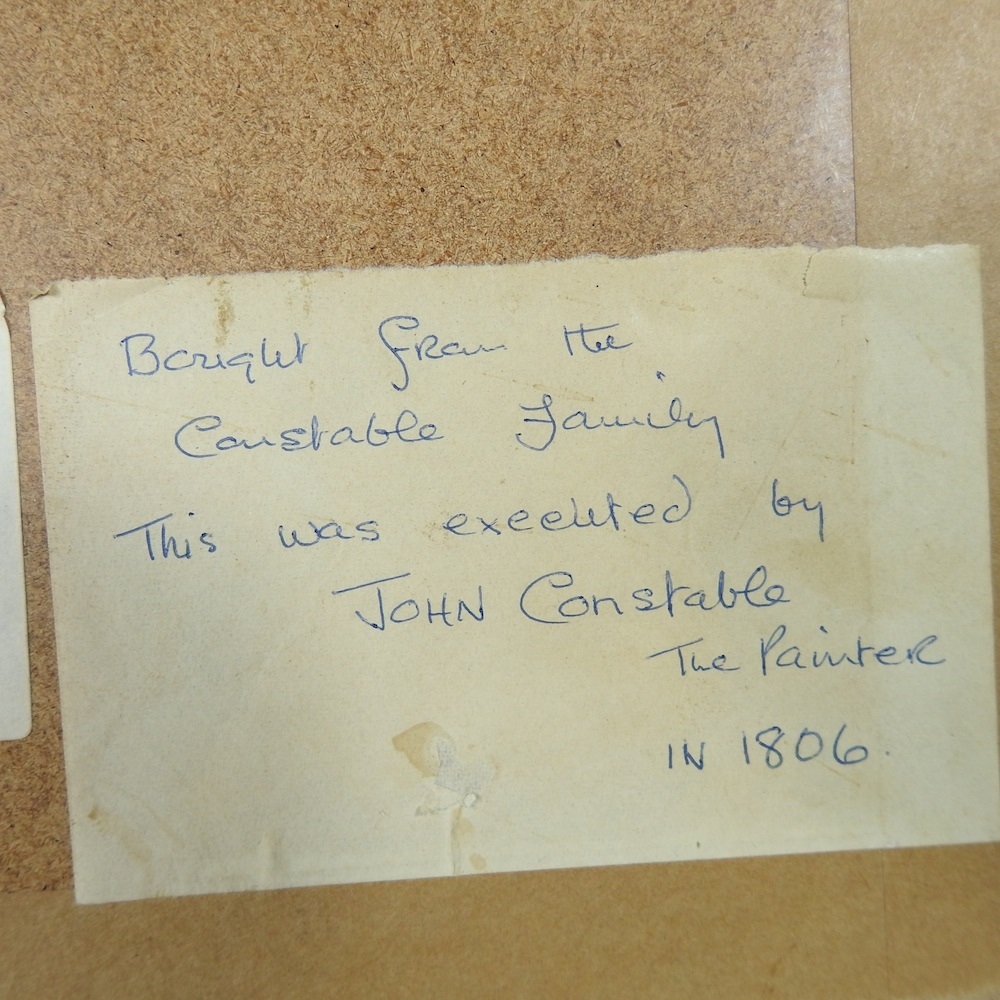 Bought from the
Constable Family
This was executed by
JOHN Constable
The Painter
IN 1806.